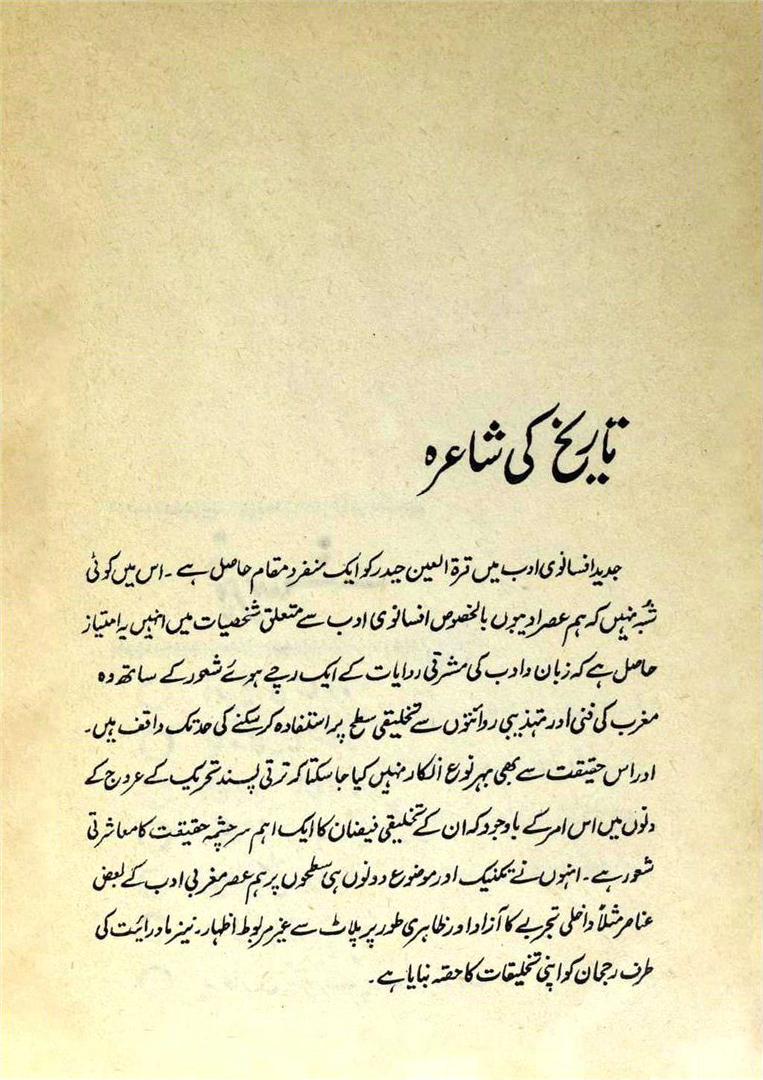 تاریخ کی شاعرہ
جدید افسانوی ادب میں قرۃ العین حیدر کو ایک منفرد مقام حاصل ہے ۔ اس میں کوئی
شبہ نہیں کہ ہم عصر ادیبوں بالخصوص افسانوی ادب سے متعلق شخصیات میں انہیں یہ امتیاز
حاصل ہے کہ زبان و ادب کی مشرقی روایات کے ایک رچے ہوئے شعور کے ساتھ وہ
مغرب کی فنی اور تہذیبی روائتوں سے تخلیقی سطح پر استفادہ کر سکنے کی حد تک واقف ہیں ۔
اور اس حقیقت سے بھی بہر نوع انکار نہیں کیا جا سکتا کہ ترقی پسند تحریک کے عروج کے
دنوں میں اس امر کے باوجود کہ ان کے تخلیقی فیضان کا ایک اہم سرچشمہ حقیقت کا معاشرتی
شعور ہے ۔ انہوں نے تکنیک اور موضوع دونوں ہی سطحوں پر ہم عصر مغربی ادب کے بعض
عناصر مثلاً داخلی تجربے کا آزاد اور ظاہری طور پر پلاٹ سے غیر مربوط اظہار ۔ نیز ماورائیت کی
طرف رجحان کو اپنی تخلیقات کا حصہ بنایا ہے ۔